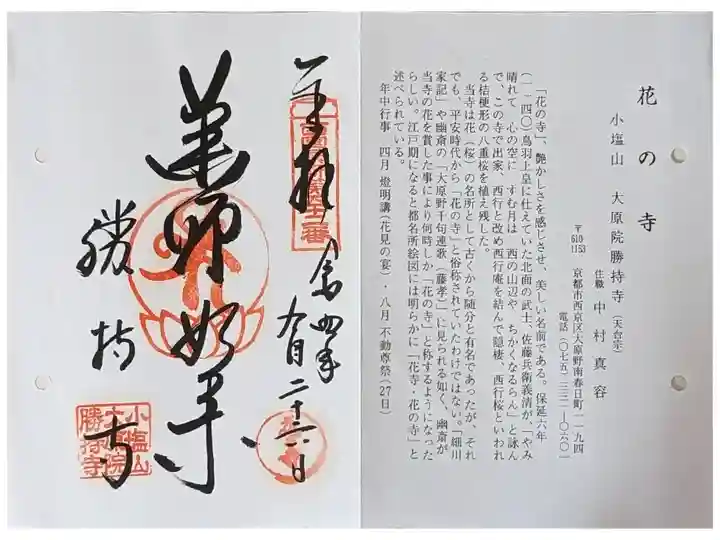 花の寺
小塩山 大原院勝持寺(天台宗)
住職 中村真容
〒610-1153 京都市西京区大原野南春日町一一九四
電話(〇七五)三三一―〇六〇一
「花の寺」、艶かしさを感じさせ、美しい名前である。保延六年
(一一四〇)鳥羽上皇に仕えていた北面の武士、佐藤兵衛義清が「やみ
晴れて 心の空に すむ月は 西の山辺や ちかくなるらん」と詠ん
で、この寺で出家、西行と改め西行庵を結んで隠棲、西行桜といわれ
る桔梗形の八重桜を植え残した。
当寺は花(桜)の名所として古くから随分と有名であったが、それ
でも、平安時代から「花の寺」と俗称されていたわけではない。「細川
家記」や幽斎の「大原野千句連歌(藤孝)」に見られる如く、幽斎が
当寺の花を賞した事により何時しか「花の寺」と称するようになった
らしい。江戸期になると都名所絵図には明らかに「花寺・花の寺」と
述べられている。
年中行事 四月 燈明講(花見の宴)・八月 不動尊祭(27日)
奉拝
令四年
九月二十六日
薬師如来
勝持寺
小塩山
大原院
勝持寺